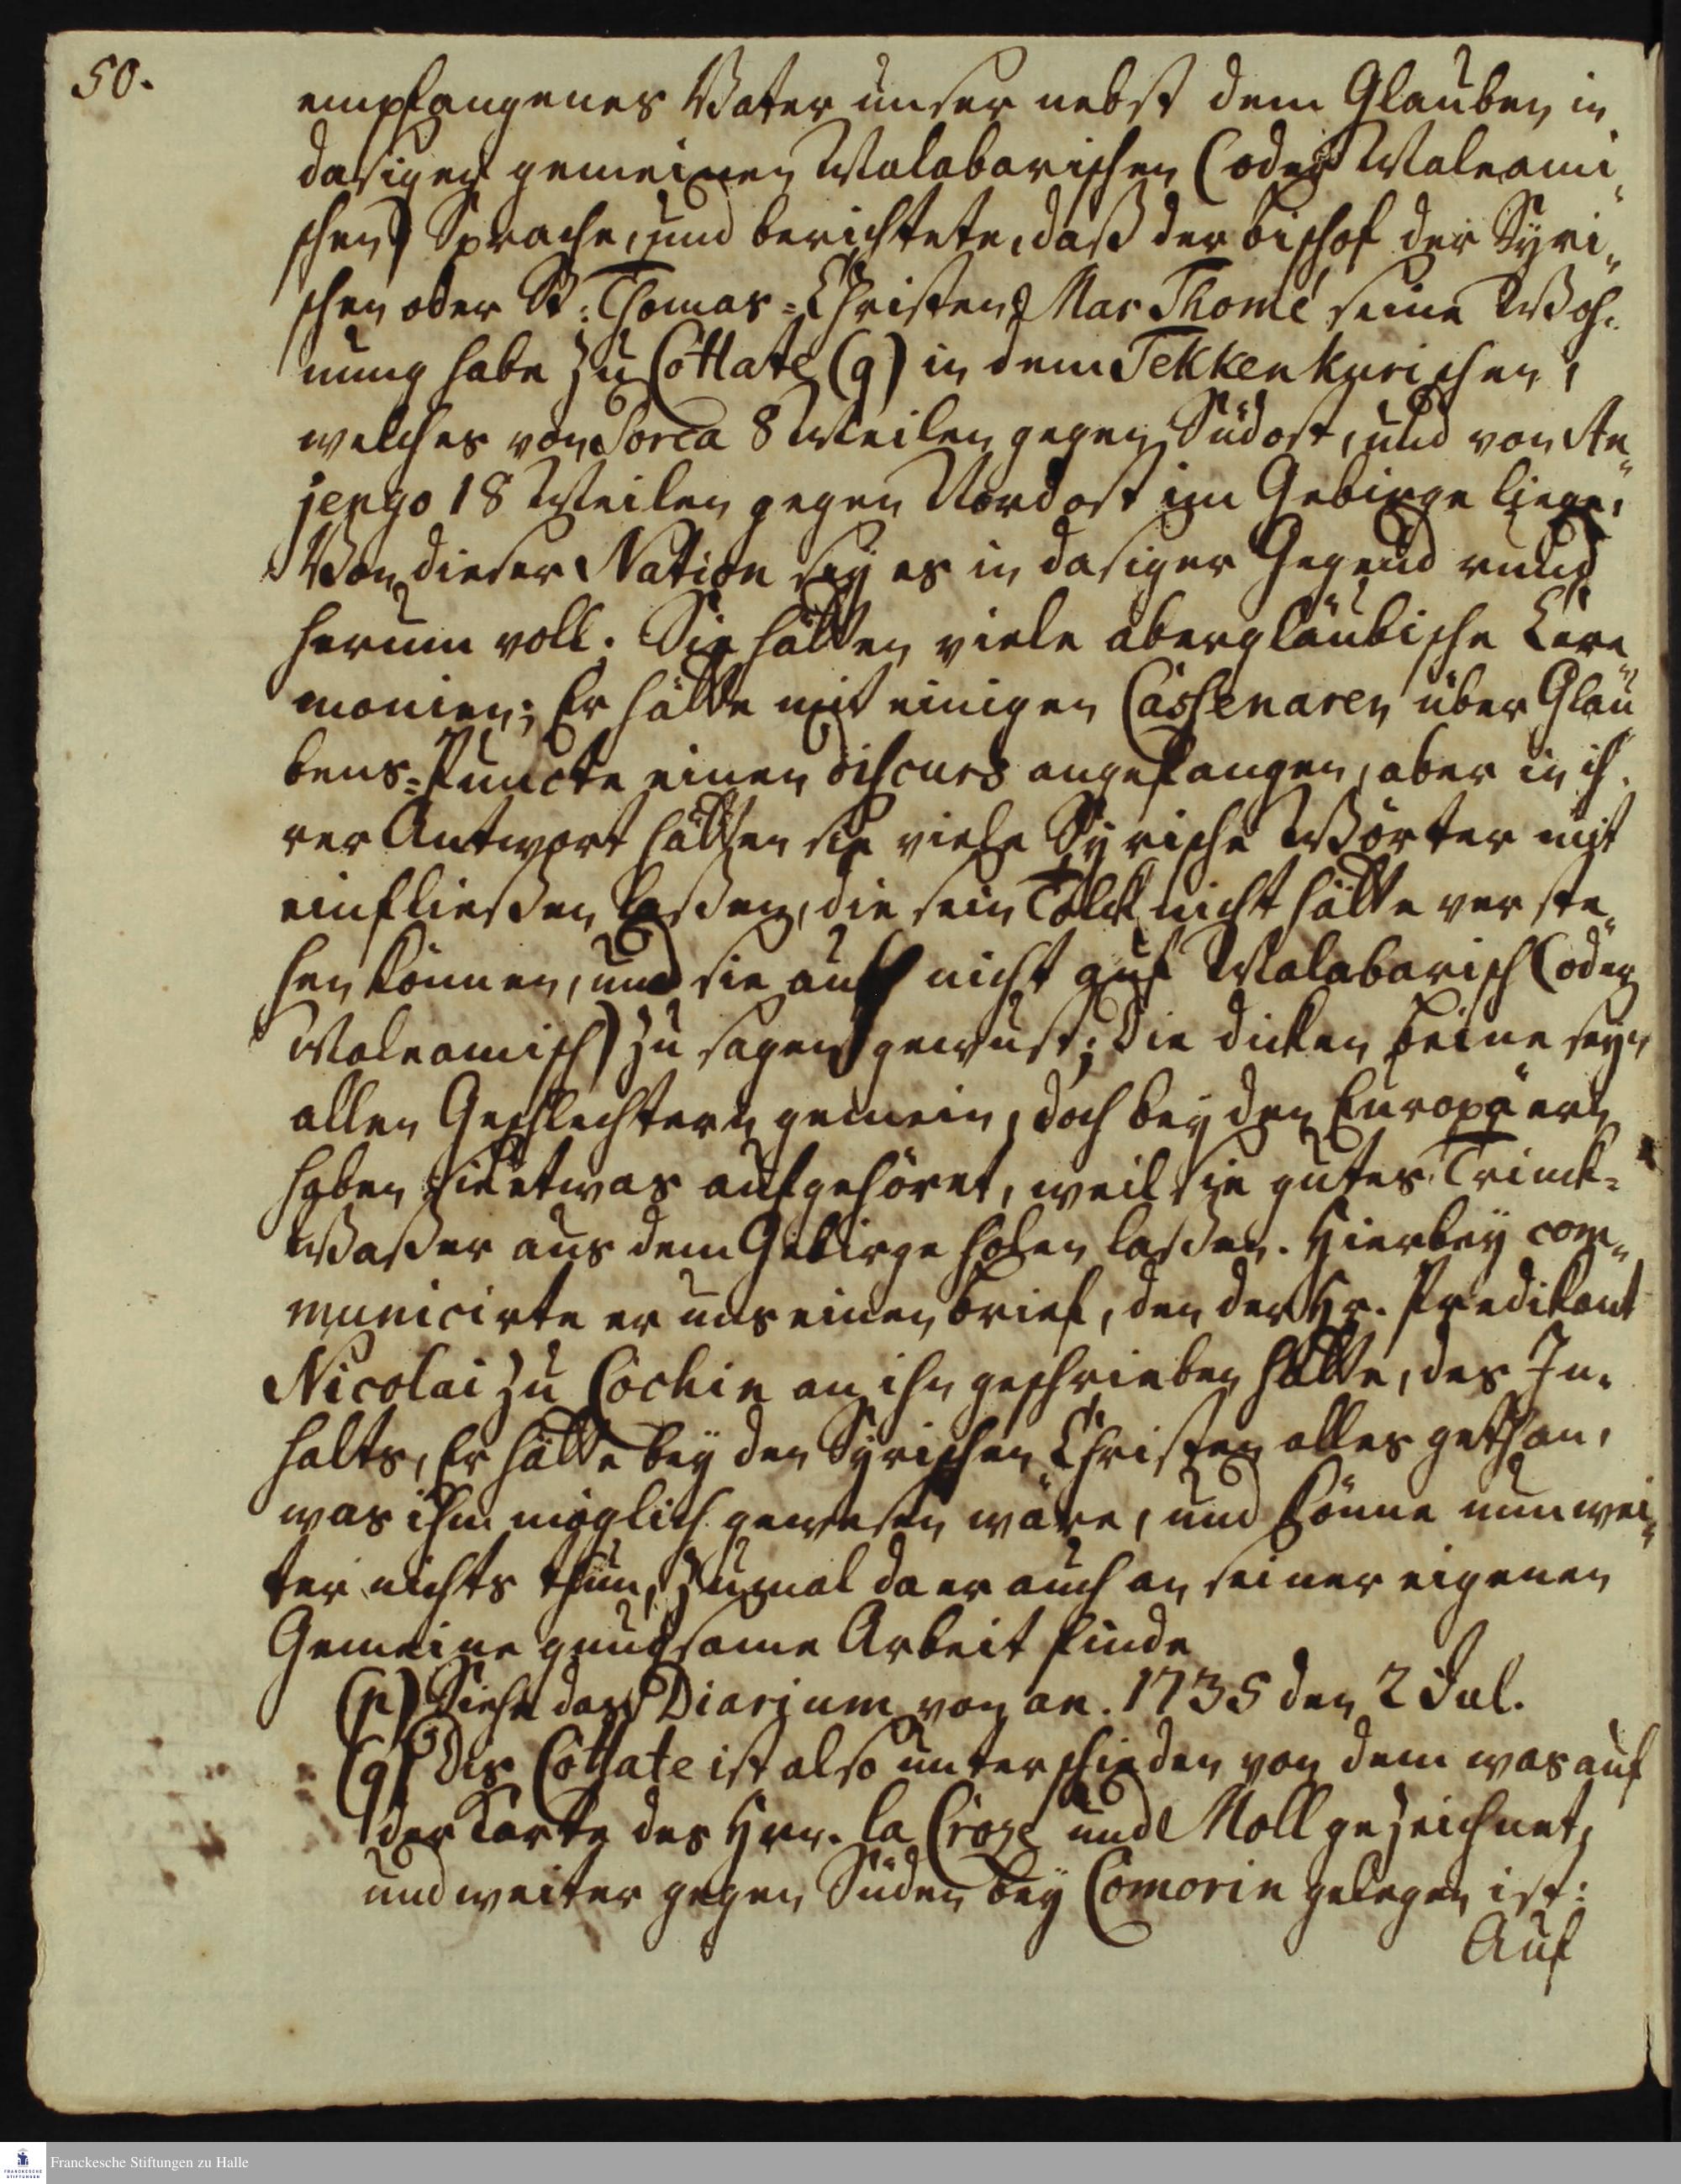 50.
empfangenes Vater unser nebst dem Glauben in
dasiger gemeinen Malabarischen (oder Maleami¬
schen) Sprache, und berichtete, daß der Bischof der Syri¬
schen oder St. Thomas-Christen Mar Thomé seine Woh¬
nung habe zu Cottate (q) in dem Tekkenkurischen,
welches von Porca 8 Meilen gegen Südost, und von An¬
jengo 18 Meilen gegen Nordost im Gebirge liege,
Von dieser Nation sey es in dasiger Gegend rund
herum voll. Sie hätten viele abergläubische Cere¬
monien; Er hätte mit einigen Cassenaren über Glau¬
bens-Puncte einen Discurs angefangen, aber in ih¬
rer Antwort hätten sie viele Syrische Wörter mit
einfließen laßen, die sein Tolck nicht hätte verste¬
hen können, und sie auch nicht auf Malabarisch (oder
Maleamisch) zu sagen gewust; Die dicken Beine seyn
allen Geschlechtern gemein, doch bey den Europäern
haben sie etwas aufgehöret, weil sie gutes Trinck-
Waßer aus dem Gebirge holen laßen. Hierbey com¬
municirte er uns einen Brief, den der Hr. Predikant
Nicolai zu Cochin an ihn geschrieben hätte, des In¬
halts, Er hätte bey den Syrischen Christen alles gethan,
was ihm möglich gewesen wäre, und könne nun wei¬
ter nichts thun, zumal da er auch an seiner eigenen
Gemeine gnugsame Arbeit finde
(p) Siehe das Diarium von an. 1735 den 2 Jul.
(q) Dis Cottate ist also unterschieden von dem was auf
der Carte des Hrn. la Croze und Moll gezeichnet,
und weiter gegen Süden bey Comorin gelegen ist:
Auf
Franckesche Stiftungen zu Halle
FRANCKESCHE STIFTUNGEN